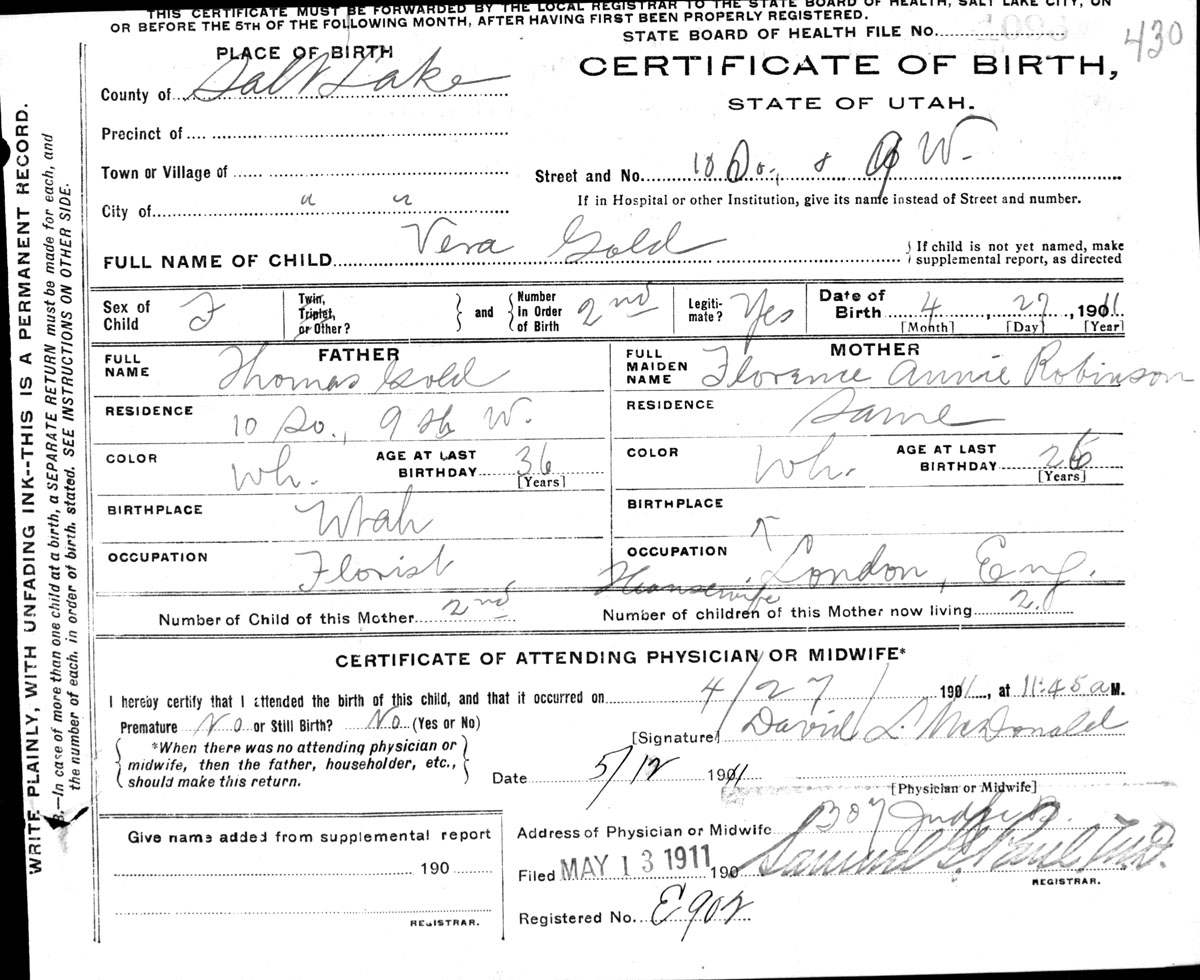 THIS CERTIFICATE MUST BE FORWARDED BY THE LOCAL REGISTRAR TO THE STATE BOARD OF HEALTH, SALT LAKE CITY, ON
OR BEFORE THE 5TH OF THE FOLLOWING MONTH, AFTER HAVING FIRST BEEN PROPERLY REGISTERED.
STATE BOARD OF HEALTH FILE No.
430
PLACE OF BIRTH
CERTIFICATE OF BIRTH,
STATE OF UTAH.
County of Salt Lake
Precinct of
Town or Village of
Street and No. 10 So., & 9 W.
City of " "
If in Hospital or other Institution, give its name instead of Street and number.
FULL NAME OF CHILD Vera Gold
If child is not yet named, make
supplemental report, as directed
Sex of Child F
Twin, Triplet, or Other?
and Number In Order of Birth 2nd
Legitimate? Yes
Date of Birth 4, 27, 1911
[Month] [Day] [Year]
FATHER
FULL NAME Thomas Gold
RESIDENCE 10 So., 9th W.
COLOR Wh. AGE AT LAST BIRTHDAY 36 [Years]
BIRTHPLACE Utah
OCCUPATION Florist
MOTHER
FULL MAIDEN NAME Florence Annie Robinson
RESIDENCE Same
COLOR Wh. AGE AT LAST BIRTHDAY 26 [Years]
BIRTHPLACE
OCCUPATION Housewife London, Eng.
Number of Child of this Mother 2nd
Number of children of this Mother now living 2.
CERTIFICATE OF ATTENDING PHYSICIAN OR MIDWIFE*
I hereby certify that I attended the birth of this child, and that it occurred on 4/27/ 1911, at 11:45 a M.
Premature No or Still Birth? No (Yes or No)
*When there was no attending physician or
midwife, then the father, householder, etc.,
should make this return.
[Signature] David L. McDonald
Date 5/12 1911
[Physician or Midwife]
Give name added from supplemental report
190
REGISTRAR.
Address of Physician or Midwife 307 Judge B.
Filed MAY 13 1911 190 Samuel G. Paul, M.D.
REGISTRAR.
Registered No. E902
WRITE PLAINLY, WITH UNFADING INK--THIS IS A PERMANENT RECORD.
B.—In case of more than one child at a birth, a SEPARATE RETURN must be made for each, and
the number of each, in order of birth, stated. SEE INSTRUCTIONS ON OTHER SIDE.